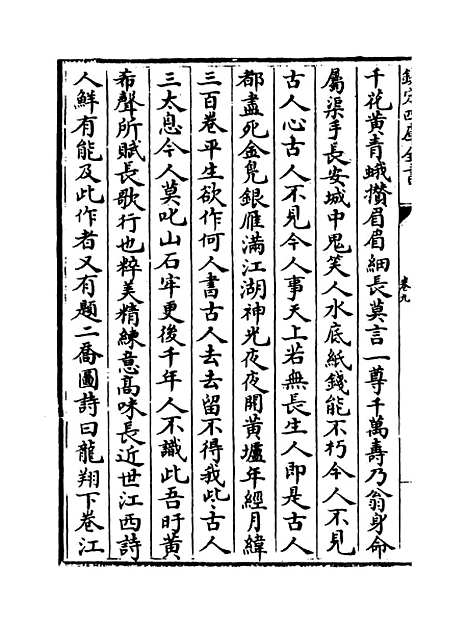 欽定四庫全書
卷九
千花黃青蛾攢眉眉細長莫言一尊千萬壽乃翁身命
屬渠手長安城中鬼笑人水底紙錢能不朽今人不見
古人心古人不見今人事天上若無長生人即是古人
都盡死金鳬銀雁滿江湖神光夜夜開黃壚年經月緯
三百卷平生欲作何人書古人去去留不得我此古人
三太息今人莫叱山石牢更後千年人不識此吾旴黃
希聲所賦長歌行也粹美精練意高味長近世江西詩
人鮮有能及此作者又有題二喬圖詩曰龍翔下卷江